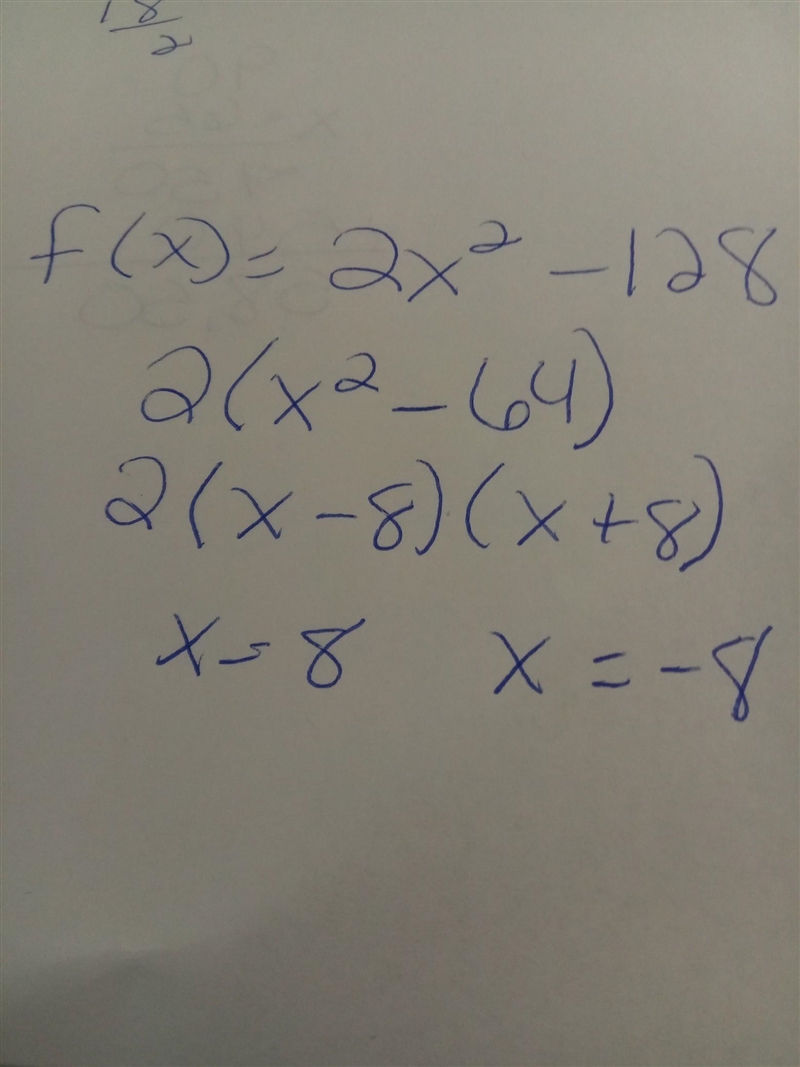 18
2
f(x) = 2x² - 128
2(x² - 64)
2(x - 8)(x + 8)
x = 8 x = -8